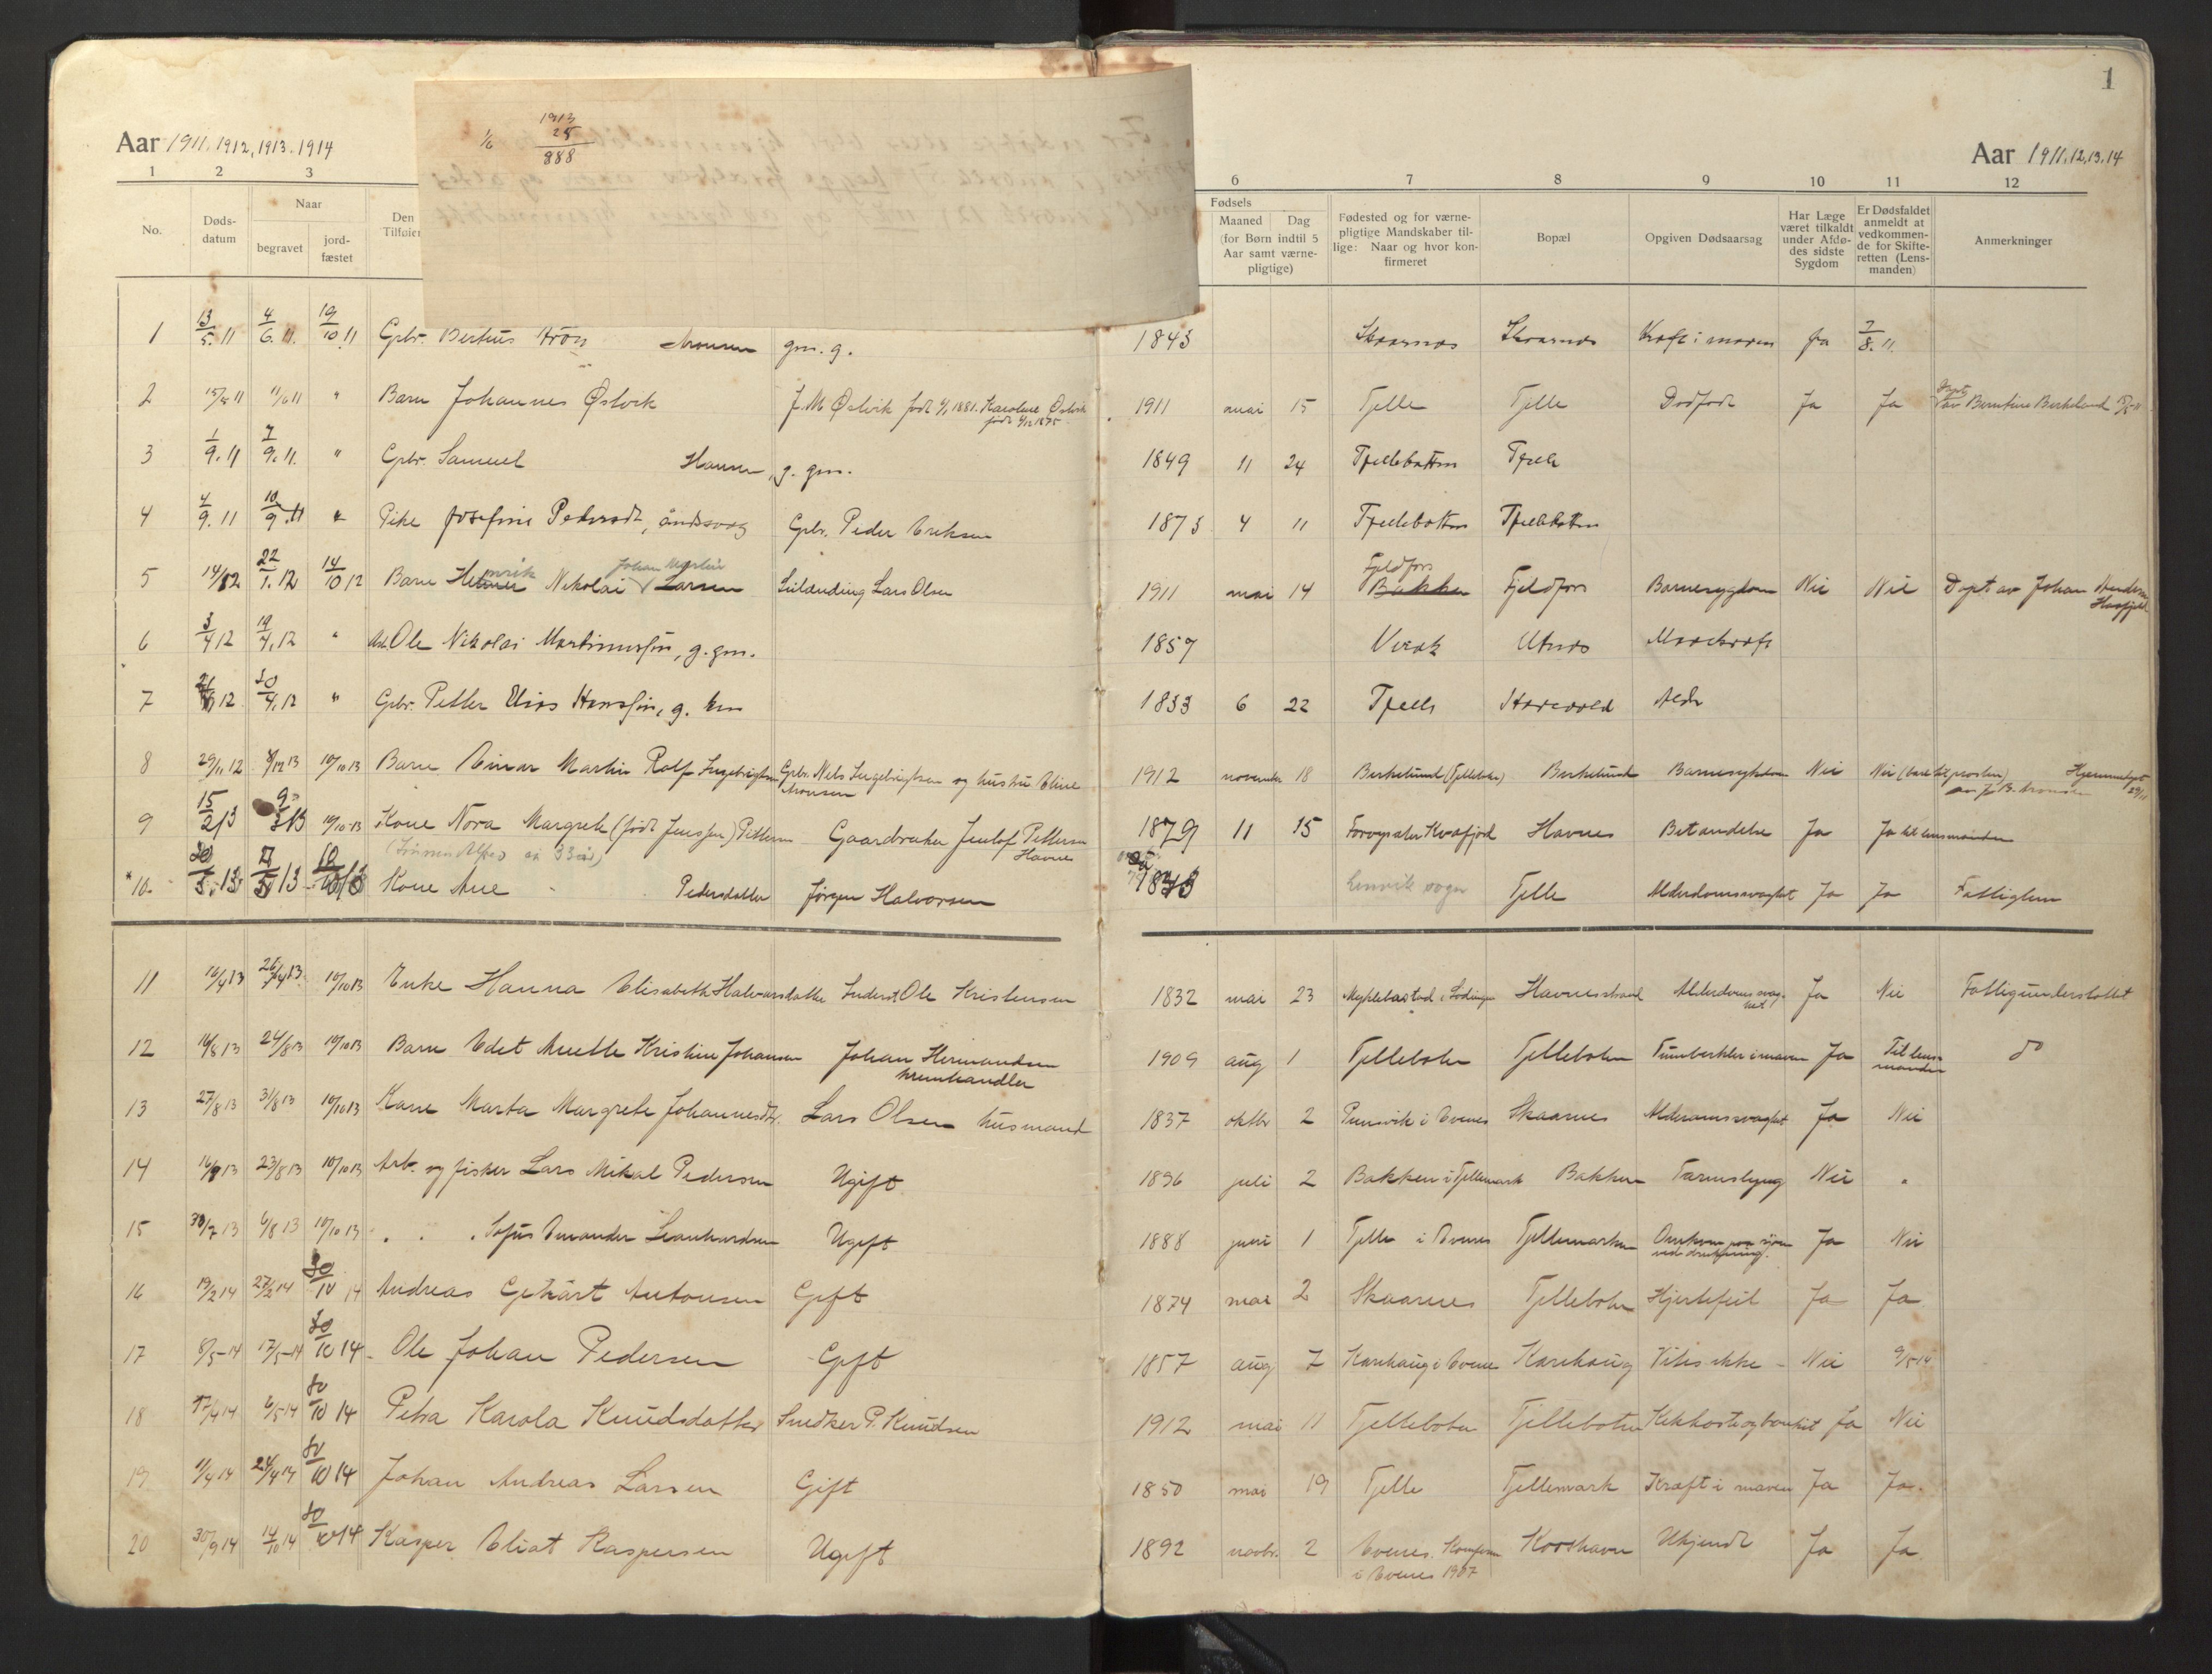 1
1913
25
888
1/6
Aar 1911, 1912, 1913. 1914
Aar 1911, 12, 13, 14
1 2 3 6 7 8 9 10 11 12
No.
Døds-
datum
Naar
begravet
jord-
fæstet
Den
Fødsels
Maaned
Dag
(for Børn indtil 5
Aar samt værne-
pligtige)
Fødested og for værne-
pligtige Mandskaber til-
lige: Naar og hvor kon-
firmeret
Bopæl
Opgiven Dødsaarsag
Har Læge
været tilkaldt
under Afdø-
des sidste
Sygdom
Er Dødsfaldet
anmeldt at
vedkommen-
de for Skifte-
retten (Lens-
manden)
Anmerkninger
1 13/5. 11 4/6. 11. 19/10 11 Gbr. Bertius Aronsen gm. g. 1843 Skaarnes Skaarnes Kræft i maven Ja 7/8. 11.
2 15/5 11 11/6 11 " Barn Johannes Østvik J. M. Østvik født 1881. Karoline Østvik født 1875 1911 mai 15 Tjelle Tjelle Dødfødt Ja Ja av Berntine Berkeland 15/5 11
3 1/9. 11 7/9. 11. " Gbr. Samuel Hansen, g. gm. 1849 11 24 Tjellebotten Tjelle
4 4/9. 11 10/9. 11 " Pike Josefine Pedersdt, åndssvag Gbr. Peder Eriksen 1873 4 11 Tjellebotten Tjellebotten
5 14/1 12 22/1. 12 14/10 12 Barn Henrik Nikolai Johan Martin Larsen Lars Olsen 1911 mai 14 Bakken Fjeldfors Fjeldfors Barnesygdom Nei Nei Døpt av Johan
6 3/4 12 19/4. 12 " Ole Nikolai Martinussen, g. gm. 1857 Virak Utnes Mavekræft
7 12 30/4. 12 " Gbr. Petter Urios Hanssen, g. Em 1833 6 22 Tjelle Alder
8 29/11 12 12 13 10/10 13 Barn Einar Martin Rolf Ingebrigtsen Gbr. Nels Ingebrigtsen og hustru Eline Aronsen 1912 november 18 Berkelund (Tjellebotn) Berkelund Barnesykdom Nei Nei Hjemmedøpt 29/11 av J. B. Aronsen
9 15/2 13 9/3 13 10/10 13 Kone Nora Margrete (født Jenssen) Pettersen Gaardbruker Jentof Pettersen Havnes 1879 11 15 Kvæfjord Havnes Betændelse Ja Ja til lensmanden
10. 13 13 10/10 13 Kone Ane Pedersdatter Jørgen Halvorsen 1843 Lenvik sogn Tjelle Alderdomssvaghet Ja Ja Fattiglem
11 16/4 13 26/4 13 10/10 13 Enke Hanna Elisabeth Halvorsdatter Inderst. Ole Kristensen 1832 mai 23 i Lødingen Havnesstrand Alderdomssvaghet Ja Nei Fattigunderstøttet
12 16/8 13 24/8 13 10/10 13 Barn Edet Anette Kristine Johansen Johan Hermandsen kremhandler 1909 aug 1 Tjellebotn Tjellebotn Tuberkler i maven Ja Til lensmanden do
13 27/8 13 31/8 13 10/10 13 Kone Marta Margrete Johannesdtr. Lars Olsen husmand 1837 oktbr 2 i Evenes Skaarnes Alderdomssvaghet Ja Nei
14 16/8 13 23/8 13 10/10 13 Arb. og fisker Lars Mikal Pedersen Ugift 1896 juli 2 Bakken i Tjellemark Bakken Tarmslyng Nei "
15 30/7 13 6/8 13 10/10 13 " " " Sofus Emander Leonhardsen Ugift 1888 juni 1 Tjelle i Evenes Tjellemarken Omkom paa sjøen ved drukning. Ja Nei
16 19/2 14 27/2 14 30/10 14 Andreas Gehart Antonsen Gift 1874 mai 2 Skaarnes Tjellebotn Hjertefeil Ja Ja
17 8/5-14 17/5-14 30/10 14 Ole Johan Pedersen Gift 1857 aug 7 Karihaug i Evenes Karihaug Vites ikke - Nei 9/5 14
18 17/4 14 6/5 14 30/10 14 Petra Karola Knudsdatter Snedker P. Knudsen 1912 mai 11 Tjellebotn Tjellebotn Kikhoste og bronkit Ja Nei
19 11/4 14 24/4 14 30/10 14 Johan Andreas Larsen Gift 1850 mai 19 Tjelle Tjellemark Kræft i maven Ja Ja.
20 30/9 14 14/10 14 30/10 14 Kasper Eliat Kaspersen Ugift 1892 novbr. 2 Evenes. Konfirm i Evenes 1907 Korshavn Ukjendt Ja Ja